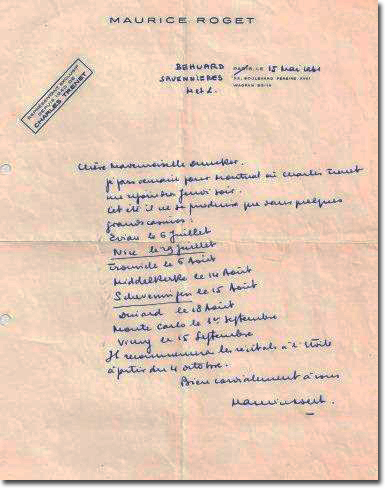 MAURICE ROGET
BEHUARD
SAVENNIÈRES
M et L.
PARIS, LE 15 Mai 1961
BOULEVARD PEREIRE XVII
WAGRAM
CHARLES TRENET
Chère Mademoiselle
je pars demain pour Montréal où Charles Trenet
me rejoindra jeudi soir.
Cet été il ne se produira que dans quelques
grands casinos.
Evian le 6 Juillet
Nice le 29 Juillet
Trouville le 5 Août
Middelkerke le 14 Août
Scheveningen le 15 Août
Dinard le 18 Août
Monte Carlo le 1er Septembre
Vichy le 15 Septembre
Il recommencera les récitals à l'Etoile
à partir du 4 octobre.
Bien cordialement à vous